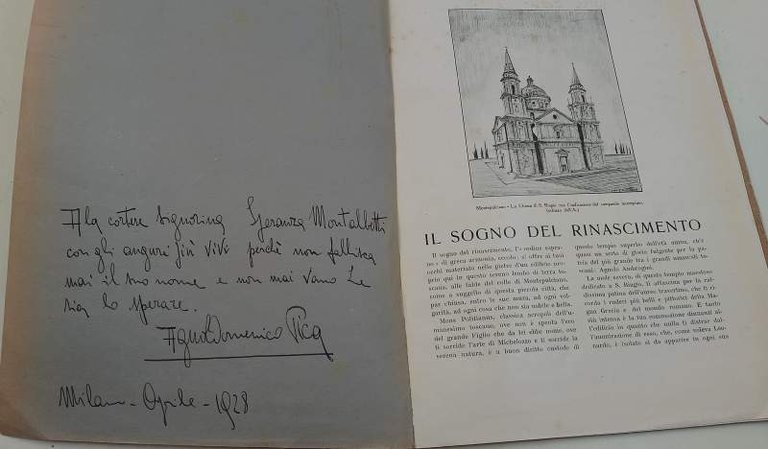 Alla cortese Signorina Speranza Montalbetti
con gli auguri più vivi perchè non fallisca
mai il suo nome e non mai vano Le
sia lo sperare.
Agnoldomenico Pica
Milano - Aprile - 1928
Montepulciano - La Chiesa di S. Biagio con
IL SOGNO DEL RINASCIMENTO
Il sogno del rinascimento, l'ordine
di greca armonia, eccolo, si offre ai tuoi
occhi materiato nelle pietre d'un edificio
proprio qui in questo estremo lembo di terra
cana, alle falde del colle di Montepulciano,
come a suggello di questa piccola città, che
par chiusa, entro le sue mura, ad ogni vol-
garità, ad ogni cosa che non sia nobile e bella.
Mons Politianus, classica acropoli dell'u-
manesimo toscano, ove non è spenta l'eco
del grande Figlio che da lei ebbe nome, ove
ti sorride l'arte di Michelozzo e ti sorride la
serena natura, è a buon diritto custode di
questo tempio superbo dell'età aurea,
tria del più grande tra i grandi umanisti To-
scani: Agnolo Ambrogini.
La mole severa, di questo tempio maestoso
dedicato a S. Biagio, ti affascina per la
dissima patina dell'umno travertino, che ti ri-
corda i ruderi più belli e pittorici della Ma-
gna Grecia e del mondo romano. E tanto
più intensa è la tua commozione dinnanzi al-
l'edificio in quanto che nulla ti distrae dal-
l'ammirazione di esso, che, come voleva Leo-
nardo, è isolato sì da apparire in ogni sua